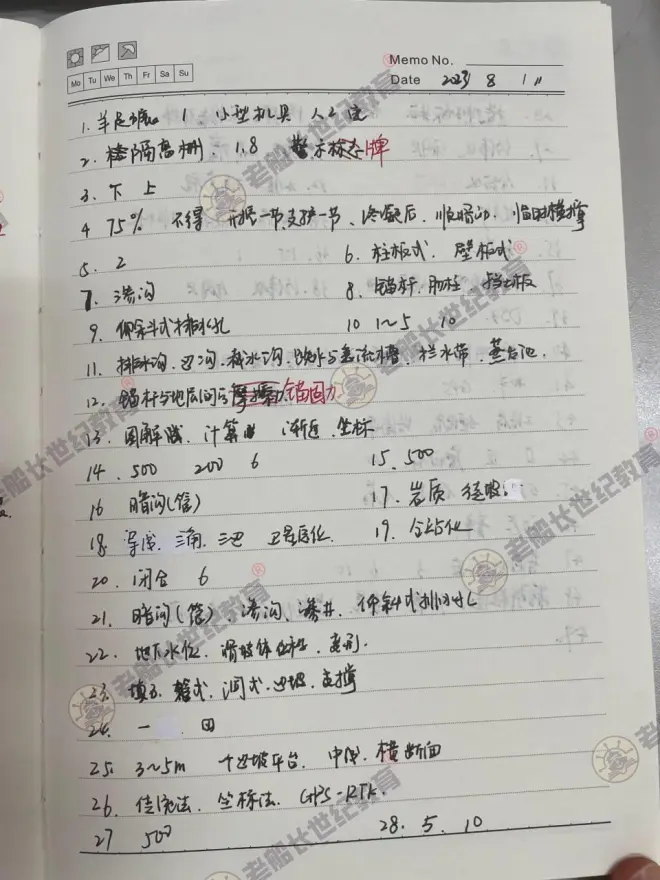 Memo No.
Mo Tu We Th Fr Sa Su
Date 2023 8 11
1. 羊足碾 1. 小型机具 人工法
2. 隔离栅. 1.8 警示标志牌
3. 下 上
4 75% 不得 开挖一节支护一节、 后. 顺 临时横撑
5. 2 6. 柱板式. 壁板式
7. 渗沟 8. 锚杆. 肋柱. 挡土板
9. 仰斜式排水孔 10 1~5 10
11. 排水沟. 边沟. 截水沟. 跌水与急流槽. 拦水带. 蒸发池.
12. 锚杆与地层间 锚固力
13. 图解法. 计算 渐近. 坐标
14. 500 200 6 15. 500
16 暗沟(管) 17. 岩质
18. 导线 三角. 三边 卫星定位. 19. 全站仪
20. 闭合 6
21. 暗沟(管). 渗沟、渗井. 仰斜式排水孔
22. 地下水位. 滑坡体位移. 变形.
23. 填石. 箱式. 洞式. 边坡. 支撑
24. 一 四
25. 3~5m 个边坡平台. 中线. 横断面
26. 坐标法. GPS-RTK.
27 500 28. 5. 10
老船长世纪教育